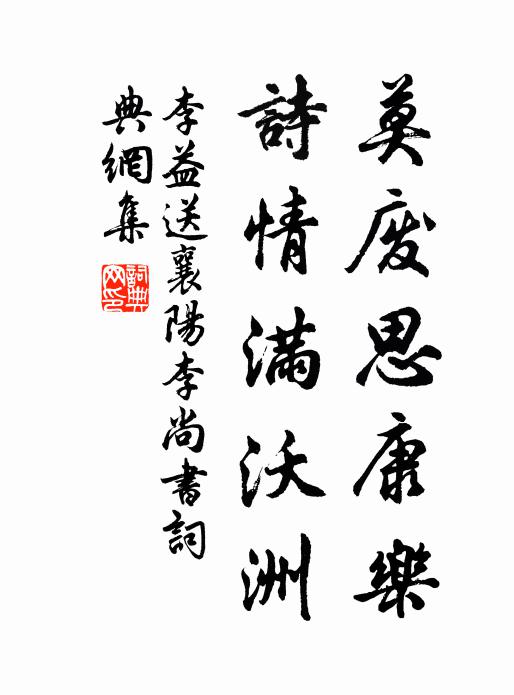 莫废思康樂
詩情滿沃洲
李益送襄陽李尚書詞
典網集
詞典
网印